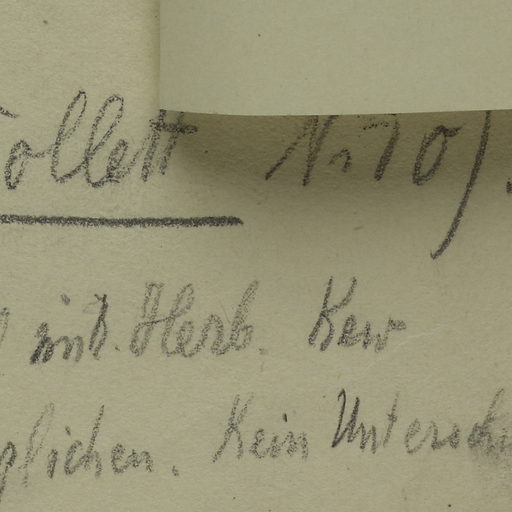 ollett Nr 70).
mit. Herb. Kew
glichen. Kein Untersch